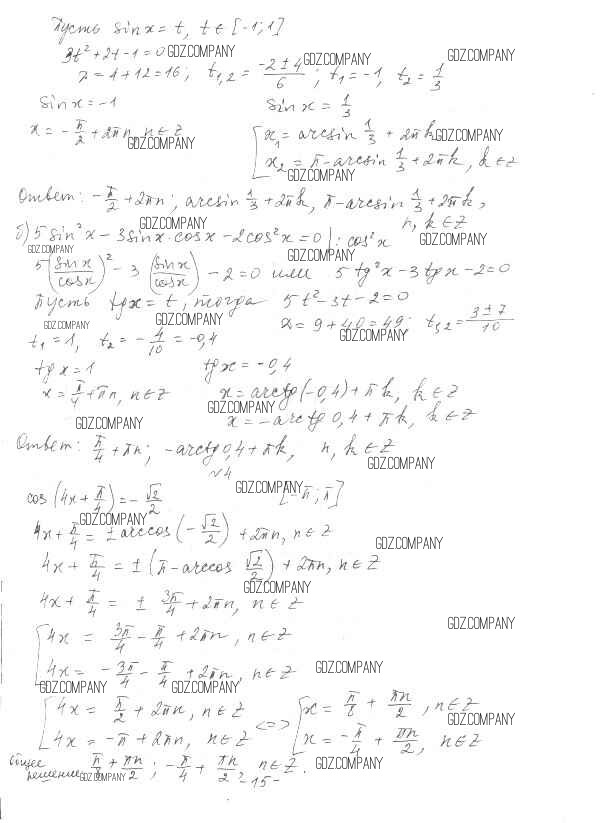 Пусть sin x = t, t ∈ [-1; 1]
3t² + 2t - 1 = 0 GDZ.COMPANY GDZ.COMPANY
D = 4 + 12 = 16; t₁,₂ = (-2 ± 4)/6; t₁ = -1, t₂ = 1/3 GDZ.COMPANY
sin x = -1 sin x = 1/3
x = -π/2 + 2πn, n ∈ Z GDZ.COMPANY
[ x₁ = arcsin 1/3 + 2πk GDZ.COMPANY
x₂ = π - arcsin 1/3 + 2πk, k ∈ Z
GDZ.COMPANY
Ответ: -π/2 + 2πn; arcsin 1/3 + 2πk, π - arcsin 1/3 + 2πk,
n, k ∈ Z
GDZ.COMPANY
б) 5 sin² x - 3 sin x · cos x - 2 cos² x = 0 | : cos² x GDZ.COMPANY
GDZ.COMPANY GDZ.COMPANY
5 (sin x/cos x)² - 3 (sin x/cos x) - 2 = 0 или 5 tg² x - 3 tg x - 2 = 0
Пусть tg x = t, тогда 5t² - 3t - 2 = 0
GDZ.COMPANY D = 9 + 40 = 49; t₁,₂ = (3 ± 7)/10
GDZ.COMPANY
t₁ = 1, t₂ = -4/10 = -0,4
tg x = 1 tg x = -0,4
x = π/4 + πn, n ∈ Z x = arctg(-0,4) + πk, k ∈ Z
GDZ.COMPANY
x = -arctg 0,4 + πk, k ∈ Z
GDZ.COMPANY
Ответ: π/4 + πn; -arctg 0,4 + πk, n, k ∈ Z
GDZ.COMPANY
№4
cos(4x + π/4) = -√2/2 GDZ.COMPANY [-π; π]
GDZ.COMPANY
4x + π/4 = ± arccos(-√2/2) + 2πn, n ∈ Z
GDZ.COMPANY
4x + π/4 = ± (π - arccos √2/2) + 2πn, n ∈ Z
GDZ.COMPANY
4x + π/4 = ± 3π/4 + 2πn, n ∈ Z
GDZ.COMPANY
[ 4x = 3π/4 - π/4 + 2πn, n ∈ Z
4x = -3π/4 - π/4 + 2πn, n ∈ Z GDZ.COMPANY
GDZ.COMPANY GDZ.COMPANY
[ 4x = π/2 + 2πn, n ∈ Z <=> [ x = π/8 + πn/2, n ∈ Z
GDZ.COMPANY
4x = -π + 2πn, n ∈ Z x = -π/4 + πn/2, n ∈ Z
Общее
решение π/8 + πn/2; -π/4 + πn/2, n ∈ Z.
GDZ.COMPANY GDZ.COMPANY
- 15 -